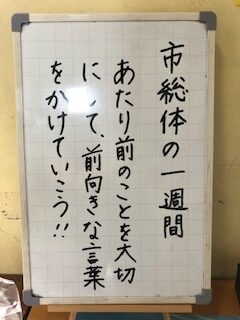 市総体の一週間
あたり前のことを大切
にして、前向きな言葉
をかけていこう!!